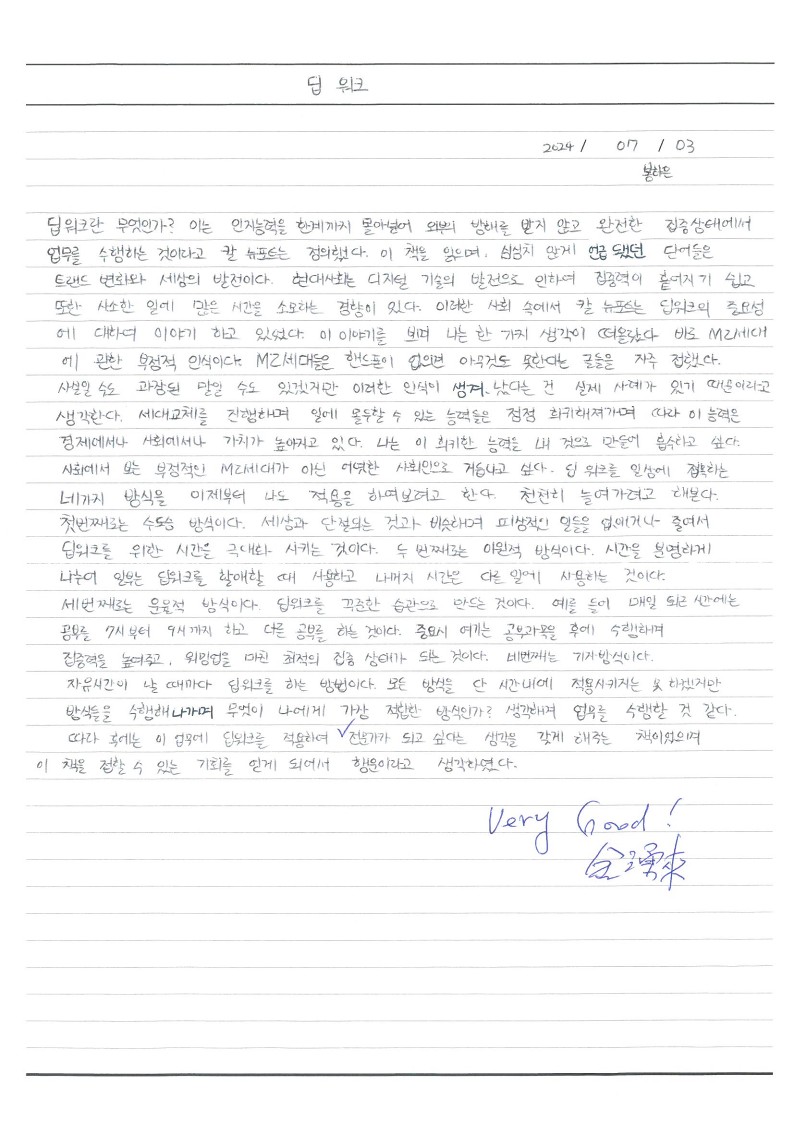 딥 워크
2024 / 07 / 03
봉하은
딥워크란 무엇인가? 이는 인지능력을 한계까지 몰아넣어 외부의 방해를 받지 않고 완전한 집중상태에서
업무를 수행하는 것이라고 칼 뉴포트는 정의했다. 이 책을 읽으며, 심심치 않게 언급 됐던 단어들은
트랜드 변화와 세상의 발전이다. 현대사회는 디지털 기술의 발전으로 인하여 집중력이 흩어지기 쉽고
또한 사소한 일에 많은 시간을 소모하는 경향이 있다. 이러한 사회 속에서 칼 뉴포트는 딥워크의 중요성
에 대하여 이야기 하고 있었다. 이 이야기를 보며 나는 한 가지 생각이 떠올랐다 바로 MZ세대
에 관한 부정적 인식이다. MZ세대들은 핸드폰이 없으면 아무것도 못한다는 글들을 자주 접했다.
사실일 수도 과장된 말일 수도 있겠지만 이러한 인식이 생겨났다는 건 실제 사례가 있기 때문이라고
생각한다. 세대교체를 진행하며 일에 몰두할 수 있는 능력들은 점점 희귀해져가며 따라 이 능력은
경제에서나 사회에서나 가치가 높아지고 있다. 나는 이 희귀한 능력을 내 것으로 만들어 흡수하고 싶다.
사회에서 보는 부정적인 MZ세대가 아닌 어엿한 사회인으로 거듭나고 싶다. 딥 워크를 일상에 접목하는
네가지 방식을 이제부터 나도 적용을 하여보려고 한다. 천천히 늘여가려고 해본다.
첫번째로는 수도승 방식이다. 세상과 단절되는 것과 비슷하며 피상적인 일들을 없애거나 줄여서
딥워크를 위한 시간을 극대화 시키는 것이다. 두 번째로는 이원적 방식이다. 시간을 분명하게
나누어 일부는 딥워크를 할애할 때 사용하고 나머지 시간은 다른 일에 사용하는 것이다.
세번째로는 운율적 방식이다. 딥워크를 꾸준한 습관으로 만드는 것이다. 예를 들어 매일 퇴근 시간에는
공부를 7시부터 9시까지 하고 다른 공부를 하는 것이다. 중요시 여기는 공부과목을 후에 수행하며
집중력을 높여주고, 워밍업을 마친 최적의 집중 상태가 되는 것이다. 네번째는 기자방식이다.
자유시간이 날 때마다 딥워크를 하는 방법이다. 모든 방식을 단 시간내에 적용시키지는 못 하겠지만
방식들을 수행해나가며 무엇이 나에게 가장 적합한 방식인가? 생각해며 업무를 수행할 것 같다.
따라 후에는 이 업무에 딥워크를 적용하여 전문가가 되고 싶다는 생각을 갖게 해주는 책이었으며
이 책을 접할 수 있는 기회를 얻게 되어서 행운이라고 생각하였다.
Very Good!